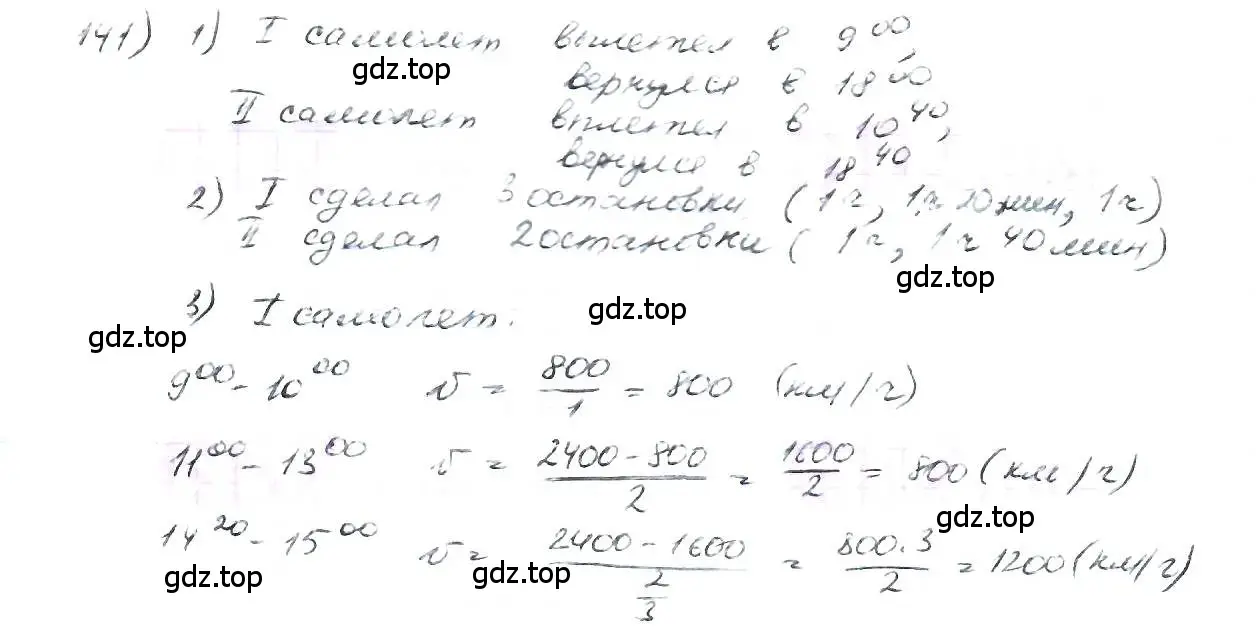 141) 1) I самолет вылетел в 9⁰⁰,
gdz.top
вернулся в 18⁰⁰
II самолет вылетел в 10⁴⁰,
вернулся в 18⁴⁰
2) I сделал 3 остановки (1ч, 1ч 20 мин, 1ч)
II сделал 2 остановки (1ч, 1ч 40 мин)
gdz.top
3) I самолет: gdz.top
gdz.top
9⁰⁰ - 10⁰⁰ v = 800/1 = 800 (км/ч)
11⁰⁰ - 13⁰⁰ v = (2400 - 800)/2 = 1600/2 = 800 (км/ч)
gdz.top
14²⁰ - 15⁰⁰ v = (2400 - 1600)/(2/3) = (800 · 3)/2 = 1200 (км/ч)
gdz.top gdz.top gdz.top